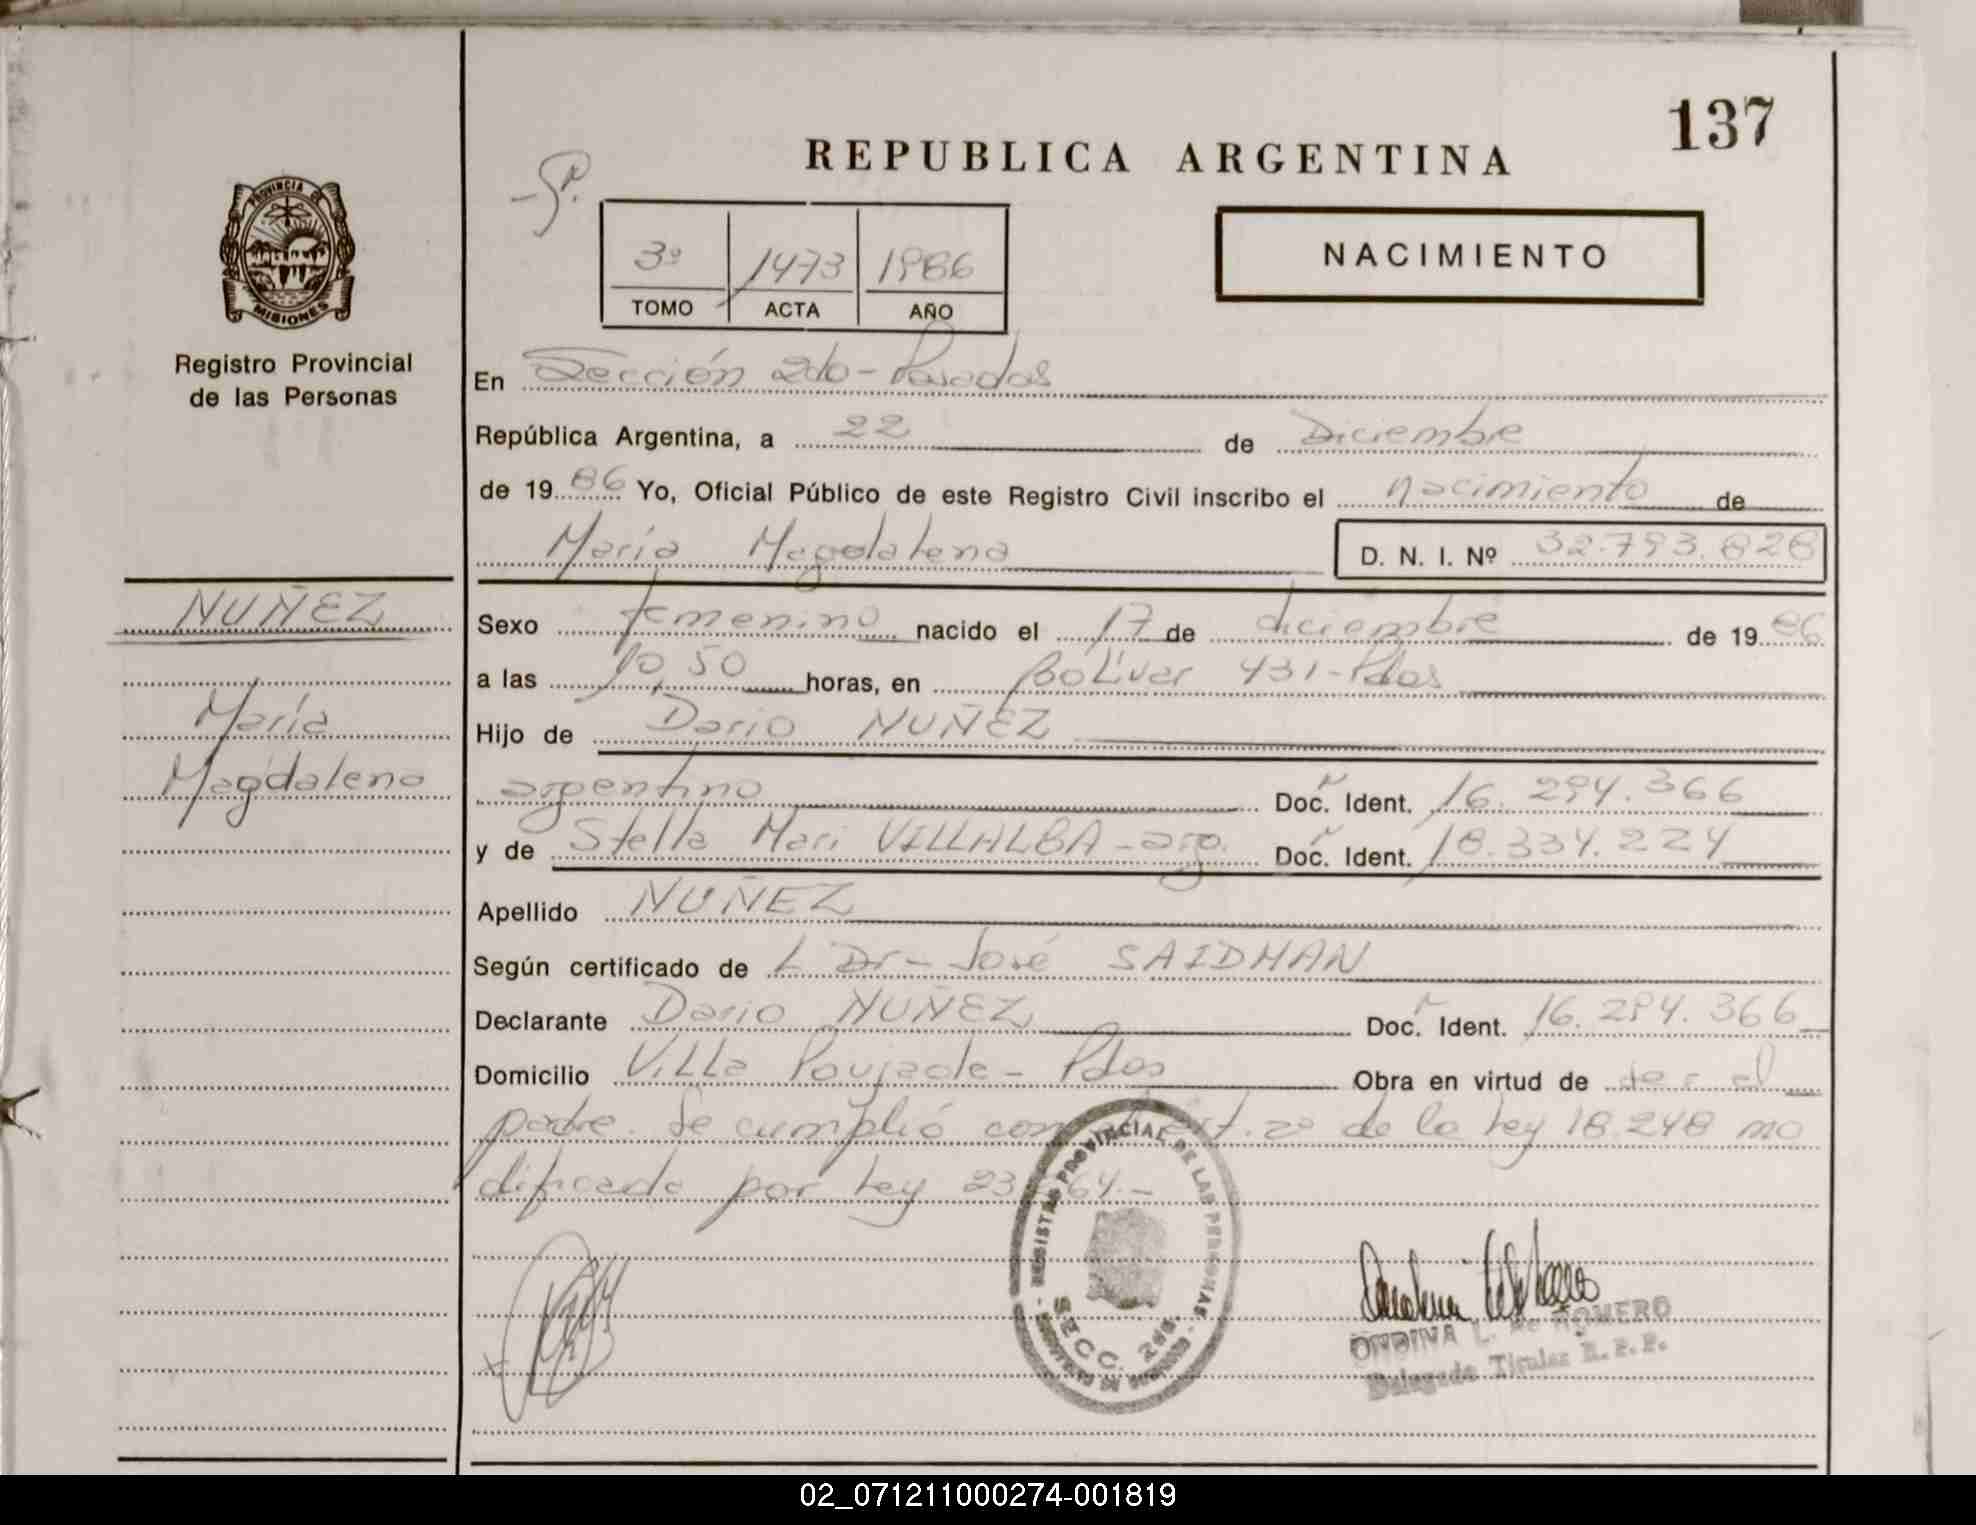 137
REPUBLICA ARGENTINA
NACIMIENTO
3º 1473 1986
TOMO ACTA AÑO
PROVINCIA DE
MISIONES
Registro Provincial
de las Personas
En Sección 2do - Posadas
República Argentina, a 22 de Diciembre
de 1986 Yo, Oficial Público de este Registro Civil inscribo el nacimiento de
María Magdalena D. N. I. Nº 32.793.828
NUÑEZ
María
Magdalena
Sexo femenino nacido el 17 de diciembre de 1986
a las 10,50 horas, en Bolívar 431 - Pdas
Hijo de Dario NUÑEZ
argentino Doc. Ident. 16.294.366
y de Stella Mari VILLALBA - arg. Doc. Ident. 18.334.224
Apellido NUÑEZ
Según certificado de L Dr - José SAIDMAN
Declarante Dario NUÑEZ Doc. Ident. 16.294.366
Domicilio Villa Poujade - Pdas Obra en virtud de ser el
padre. Se cumplió con Art. 2º de la Ley 18.248 mo
dificada por Ley 23 64.-
REGISTRO PROVINCIAL DE LAS PERSONAS
SECC. 2da.
ONDINA L. de ROMERO
Delegada Titular R.P.P.
02_071211000274-001819